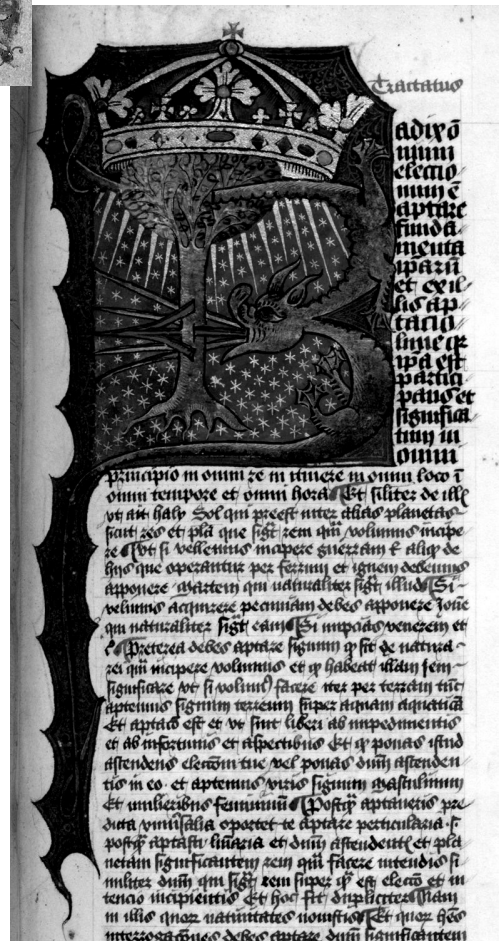 Tractatus
adix ō
mnium
electio
num ē
aptare
funda
menta
ipārū
et ex il
lis ap
tacio
lune qr
ipā est
partici
pans et
significa
tiuū in
omni
principio in omni re in itinere in omni loco ī
omni tempore et omni hora Et siliter de illꝭ
vt ait haly Sol qui preest inter alias planetas
sicut res et plā que sigt rem quā volumus incipe
re Vt si vellemus incipere guerram ł aliqͥ de
hijs que operantur per ferrum et ignem debemus
apponere martem qui naturaliter sigt illud Si
velimus acquirere pecuniam debes apponere Joue
qui naturaliter sigt eam Si nupcias venerem et
c̄ Preterea debes aptare signum qͩ sit de natura
rei quā incipere volumus et qͩ habeat illam sem
significare vt si volumꝰ facere iter per terram tūc
aptemus signum terreum super aquam aquaticā
Et aptacō est et vt sint liberi ab impedimentis
et ab infortunijs et aspectibus Et qͩ ponas istud
ascendens eleccōm tue vel ponas dūm ascenden
tis in eo et aptemus viris signum masculinum
Et mulieribus femininū Postqͣ aptaueris pre
dicta vniūsalia oportet te aptare particularia .s.
postqͣ aptasti lunaria et dūm ascendentꝭ et pla
netam significantem rem quā facere intendis si
militer dūm qui sigt rem super qͣ est eleccō et in
tencio incipientis Et hoc fit dupliciter Nam
in illis quorˢ natiuitates nouistis Et quorˢ hēs
interrogacōnes debes aptare dūm significantem